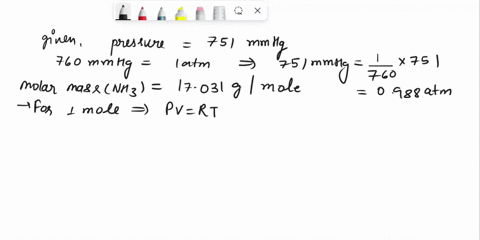 given, pressure = 751 mmHg
760 mmHg = 1atm ⇒ 751 mmHg = 1/760 × 751
= 0.988 atm
molar mass(NH3) = 17.031 g / mole
→ for 1 mole ⇒ PV = RT